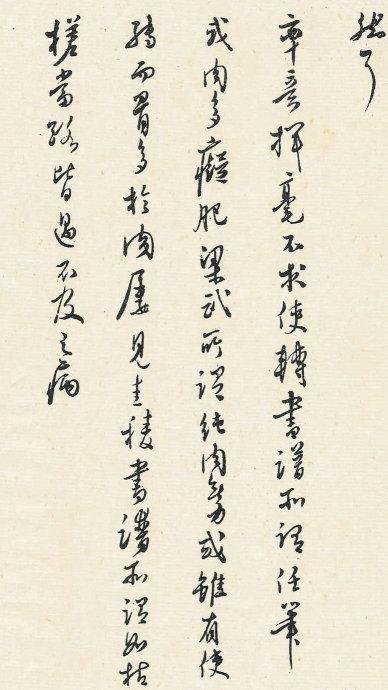 然
率意揮毫不求使轉書譜所謂任筆
或肉多癡肥梁武所謂純肉無力或雖有使
轉而骨多於肉屢見圭稜書譜所謂如枯
槎當路皆過不及之病